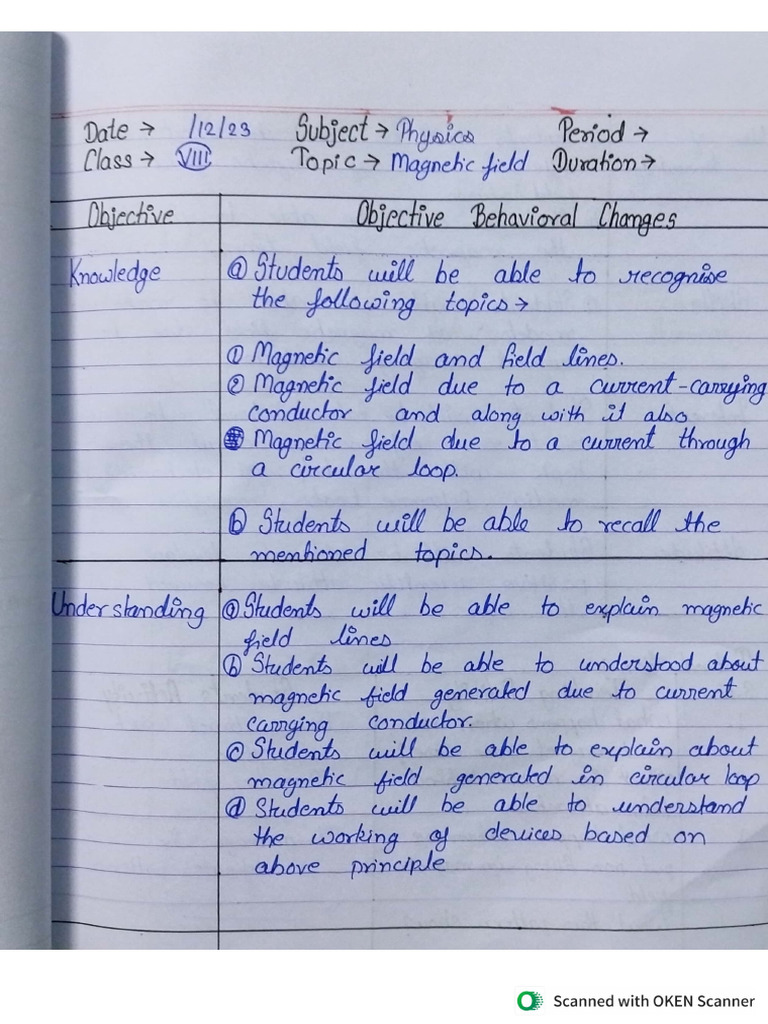 Date → /12/23 Subject → Physics Period →
Class → VIII Topic → Magnetic field Duration →
Objective Objective Behavioral Changes
Knowledge ⓐ Students will be able to recognise
the following topics →
① Magnetic field and field lines.
② Magnetic field due to a current-carrying
conductor and along with it also
Magnetic field due to a current through
a circular loop.
ⓑ Students will be able to recall the
mentioned topics.
Understanding ⓐ Students will be able to explain magnetic
field lines
ⓑ Students will be able to understood about
magnetic field generated due to current
carrying conductor.
ⓒ Students will be able to explain about
magnetic field generated in circular loop
ⓓ Students will be able to understand
the working of devices based on
above principle
Scanned with OKEN Scanner